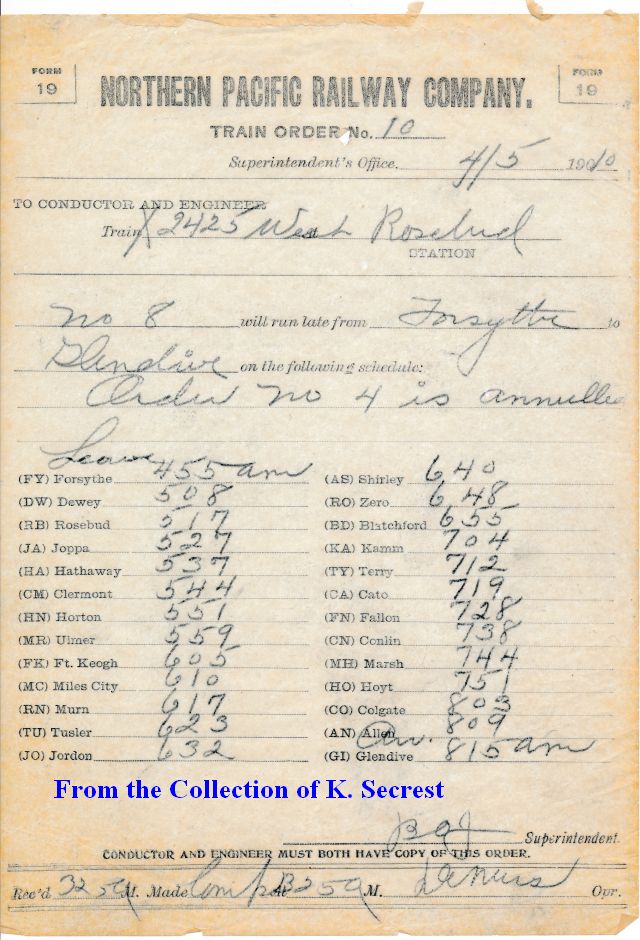 FORM 19
FORM 19
NORTHERN PACIFIC RAILWAY COMPANY.
TRAIN ORDER No. 10
Superintendent's Office. 4/5 1910
TO CONDUCTOR AND ENGINEER
Train X 2425 West Rosebud
STATION
No 8 will run late from Forsythe to
Glendive on the following schedule:
Order No 4 is annulled
Leave
(FY) Forsythe 455 am
(DW) Dewey 508
(RB) Rosebud 517
(JA) Joppa 527
(HA) Hathaway 537
(CM) Clermont 544
(HN) Horton 551
(MR) Ulmer 559
(FK) Ft. Keogh 605
(MC) Miles City 610
(RN) Murn 617
(TU) Tusler 623
(JO) Jordon 632
(AS) Shirley 640
(RO) Zero 648
(BD) Blatchford 655
(KA) Kamm 704
(TY) Terry 712
(CA) Cato 719
(FN) Fallon 728
(CN) Conlin 738
(MH) Marsh 744
(HO) Hoyt 751
(CO) Colgate 803
(AN) Allen 809
Arr.
(GI) Glendive 815 am
From the Collection of K. Secrest
Superintendent.
CONDUCTOR AND ENGINEER MUST BOTH HAVE COPY OF THIS ORDER.
Rec'd 325a M. Made Comp at 325a M. Opr.